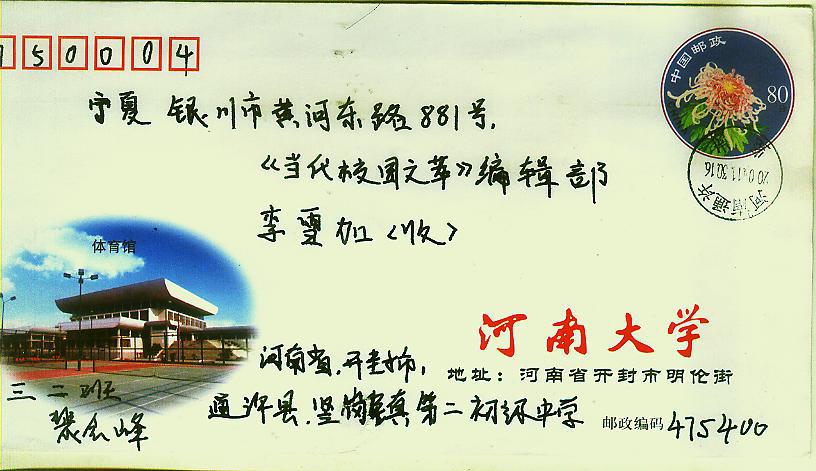 750004
中国邮政
80
宁夏 银川市黄河东路881号,
《当代校园文萃》编辑部
李雪加〈收〉
河南通许
体育馆
河南大学
河南省,开封市,
地址:河南省开封市明伦街
三 二班
通许县,坚岗镇第二初级中学
邮政编码 475400